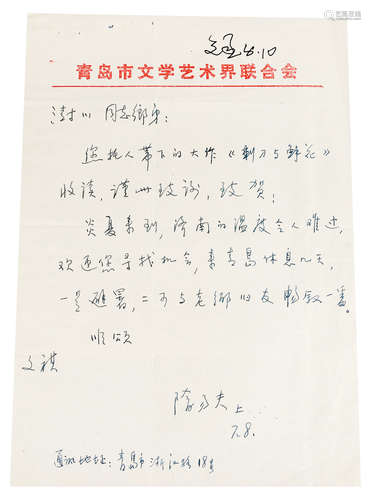 青岛市文学艺术界联合会
澍川同志乡弟:
您托人带下的大作《剃刀与鲜花》
收读,谨此致谢,致贺!
炎夏来到,济南的温度令人难过,
欢迎您寻找机会,来青岛休息几天,
一是避暑,二可与老乡旧友畅叙一番。
顺颂
文祺
上
7.8.
通讯地址:青岛市浙江路18号